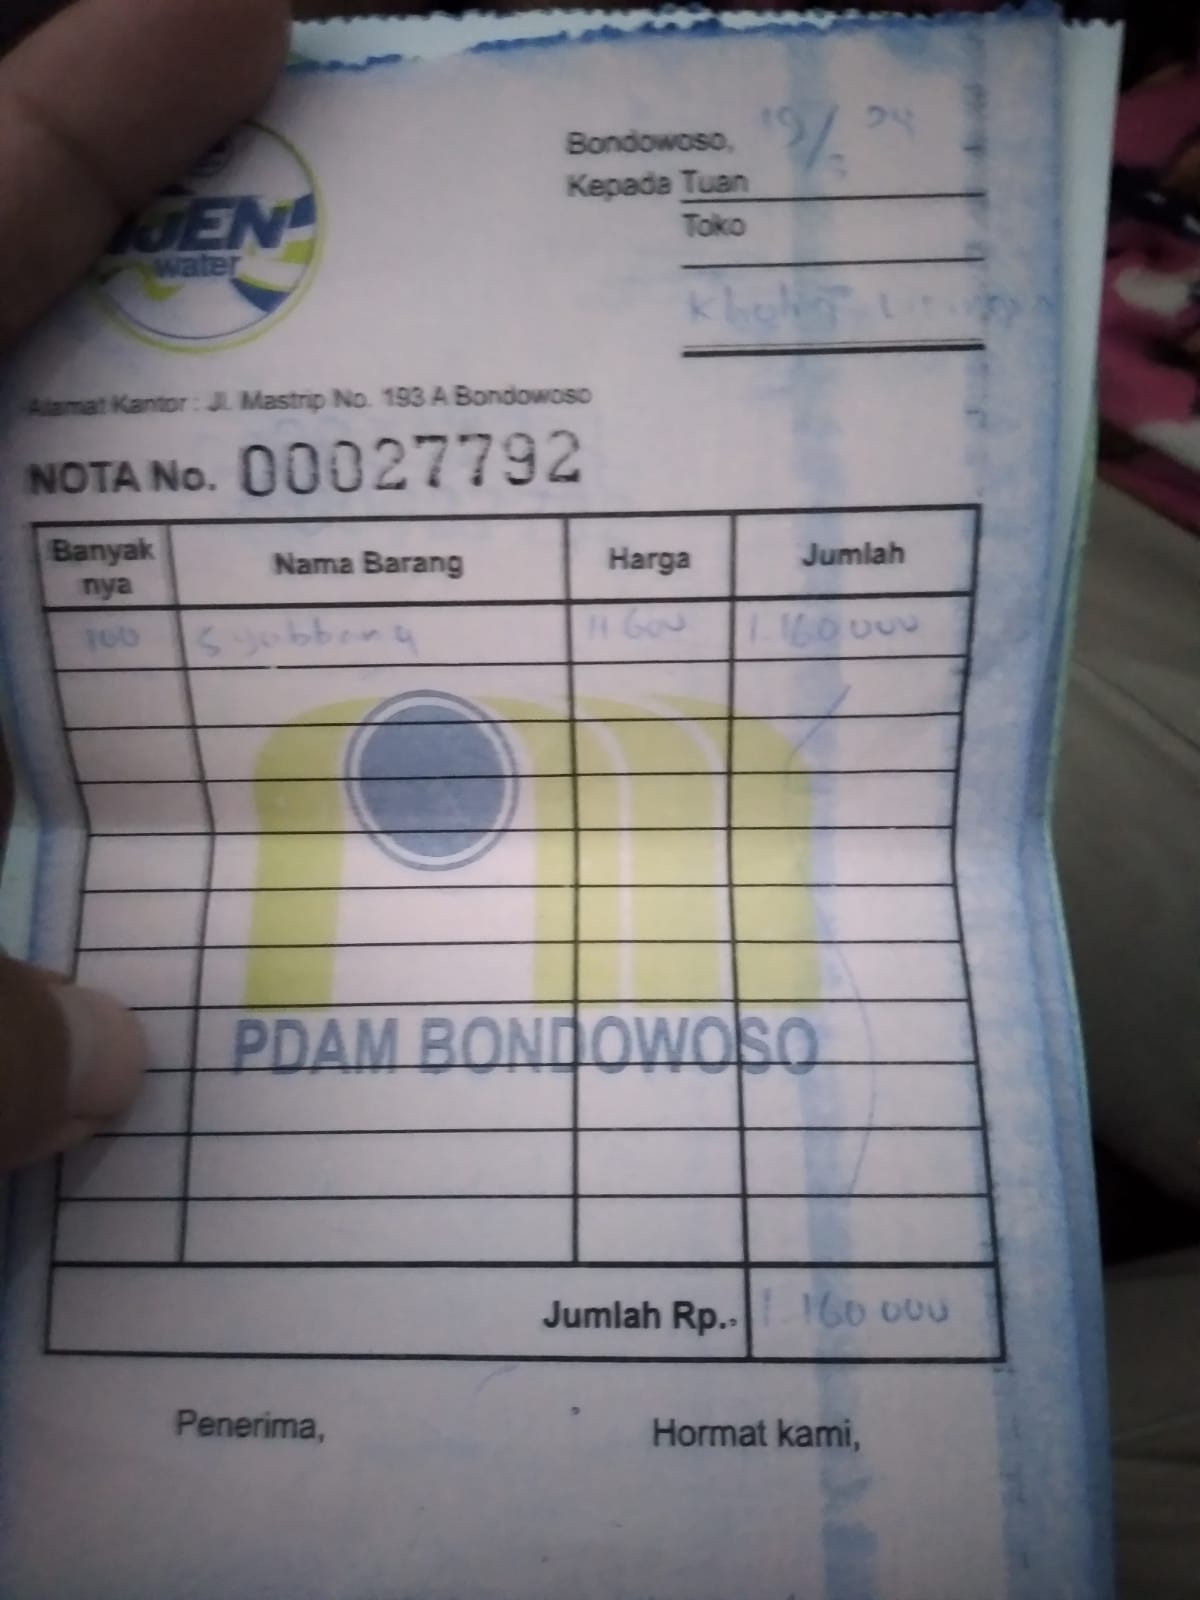 IJEN
water
Bondowoso, 19/ 24
Kepada Tuan
Toko
Alamat Kantor : Jl. Mastrip No. 193 A Bondowoso
NOTA No. 00027792
Banyak nya Nama Barang Harga Jumlah
100 Syubbanq 11 600 1.160 000
PDAM BONDOWOSO
Jumlah Rp., 1.160 000
Penerima, Hormat kami,